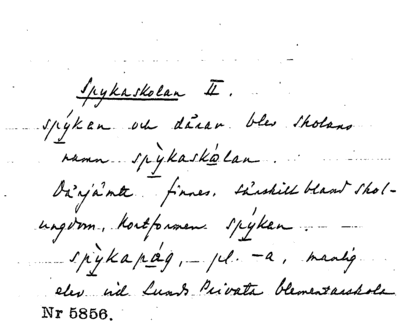 Spykaskolan II.
spýkan och därav blev skolans
namn spỳkaskólan.
Därjämte finnes, särskilt bland skol-
ungdom, kortformen spýkan.
spỳkapág, pl. -a, manlig
elev vid Lunds Privata Elementarskola
Nr 5856.